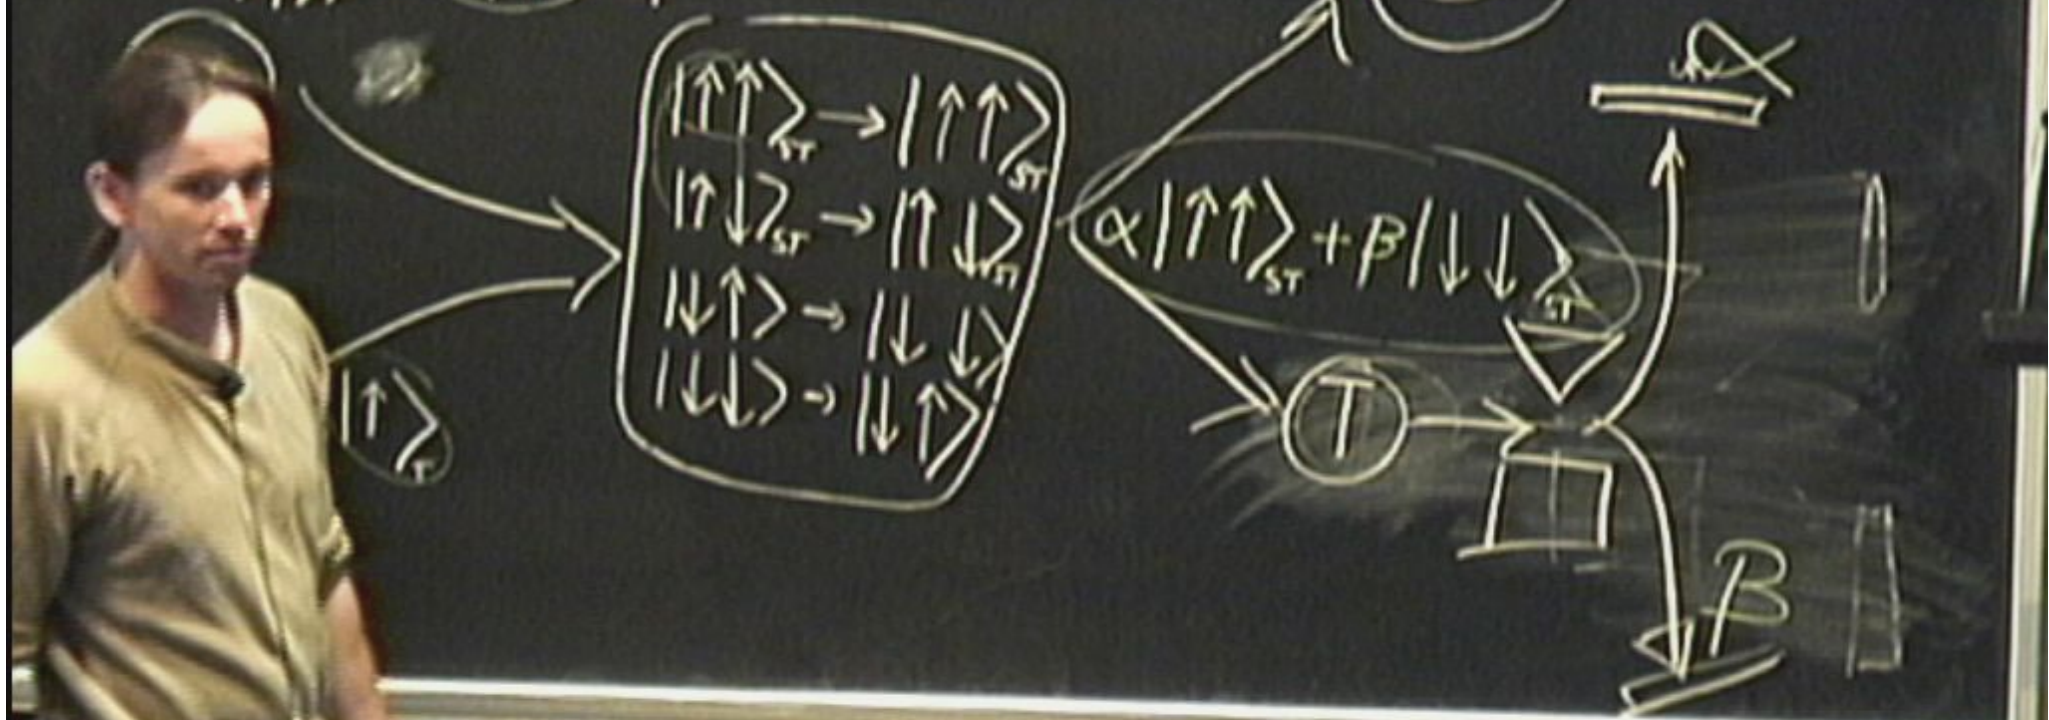 |↑↑⟩ST → |↑↑⟩ST
|↑↓⟩ST → |↑↓⟩ST
|↓↑⟩ → |↓↓⟩
|↓↓⟩ → |↓↑⟩
|↑⟩T
α|↑↑⟩ST + β|↓↓⟩ST
T
α
β